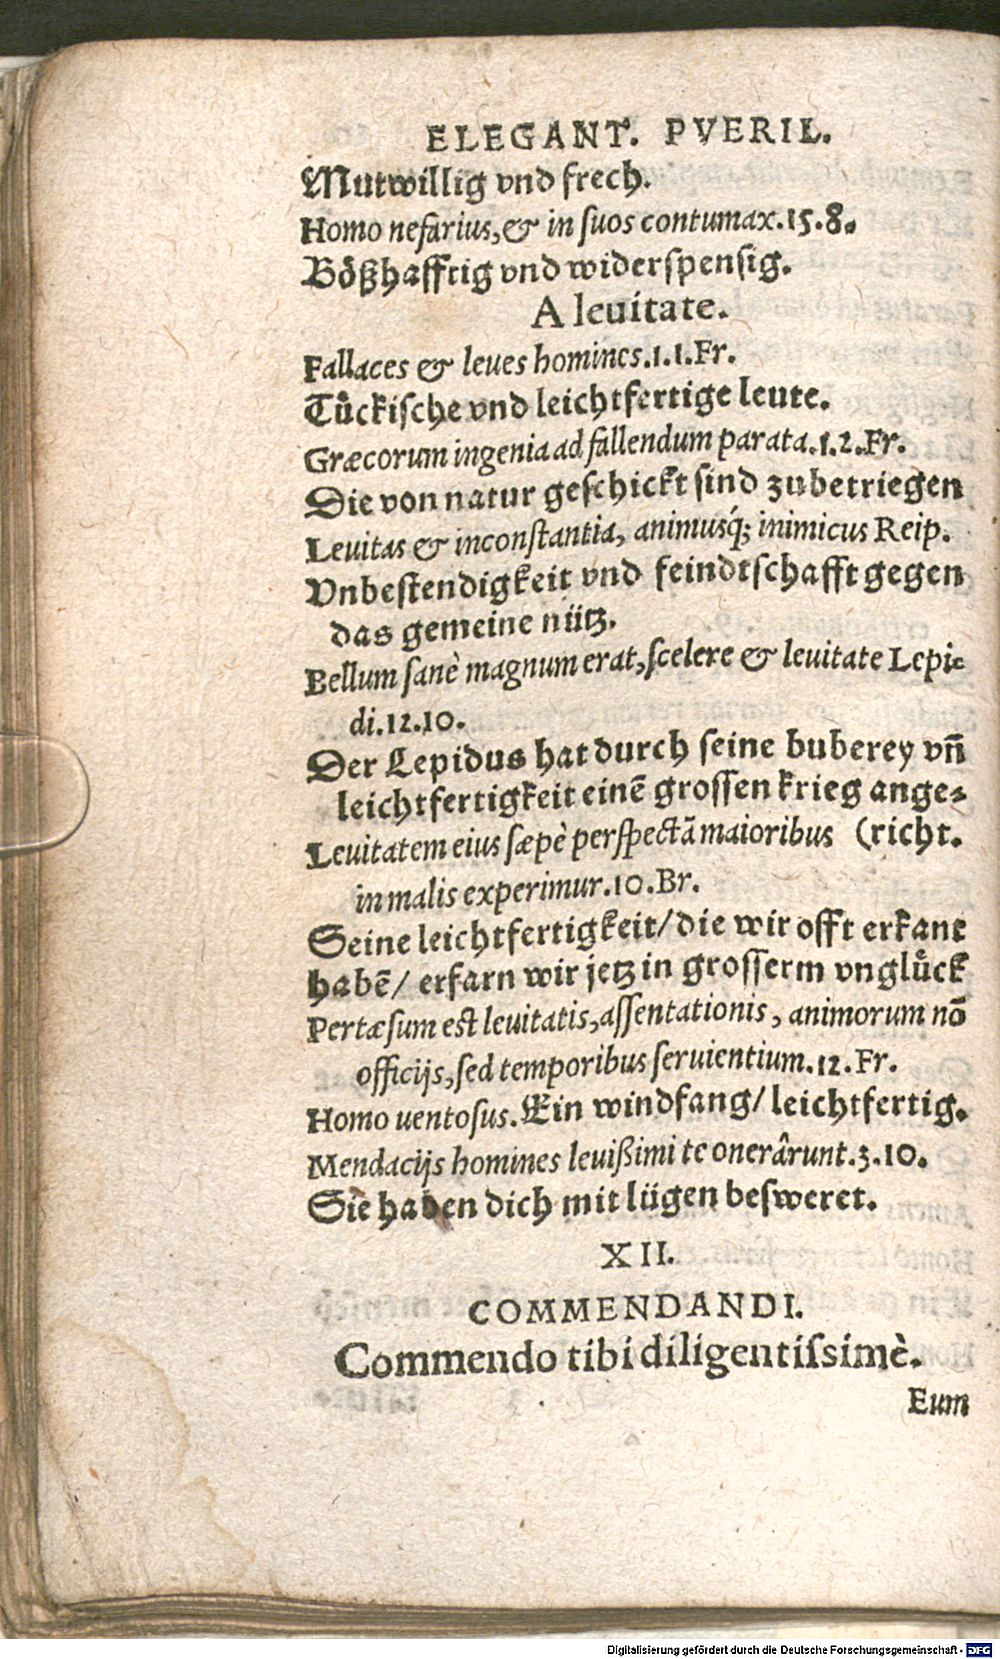 ELEGANT. PVERIL.
Mutwillig vnd frech.
Homo nefarius, & in suos contumax. 15. 8.
Bößhafftig vnd widerspensig.
A leuitate.
Fallaces & leues homines. 1. 1. Fr.
Tuͤckische vnd leichtfertige leute.
Græcorum ingenia ad fallendum parata. 1. 2. Fr.
Die von natur geschickt sind zubetriegen
Leuitas & inconstantia, animusq́; inimicus Reip.
Vnbestendigkeit vnd feindtschafft gegen
das gemeine nütz.
Bellum sanè magnum erat, scelere & leuitate Lepi-
di. 12. 10.
Der Lepidus hat durch seine buberey vñ
leichtfertigkeit einē grossen krieg ange-
Leuitatem eius sæpè perspectā maioribus (richt.
in malis experimur. 10. Br.
Seine leichtfertigkeit/ die wir offt erkant
habē/ erfarn wir jetz in grosserm vngluͤck
Pertæsum est leuitatis, assentationis, animorum nō
officijs, sed temporibus seruientium. 12. Fr.
Homo uentosus. Ein windfang/ leichtfertig.
Mendacijs homines leuißimi te onerârunt. 3. 10.
Sie haben dich mit lügen besweret.
XII.
COMMENDANDI.
Commendo tibi diligentissimè.
Eum
Digitalisierung gefördert durch die Deutsche Forschungsgemeinschaft - DFG